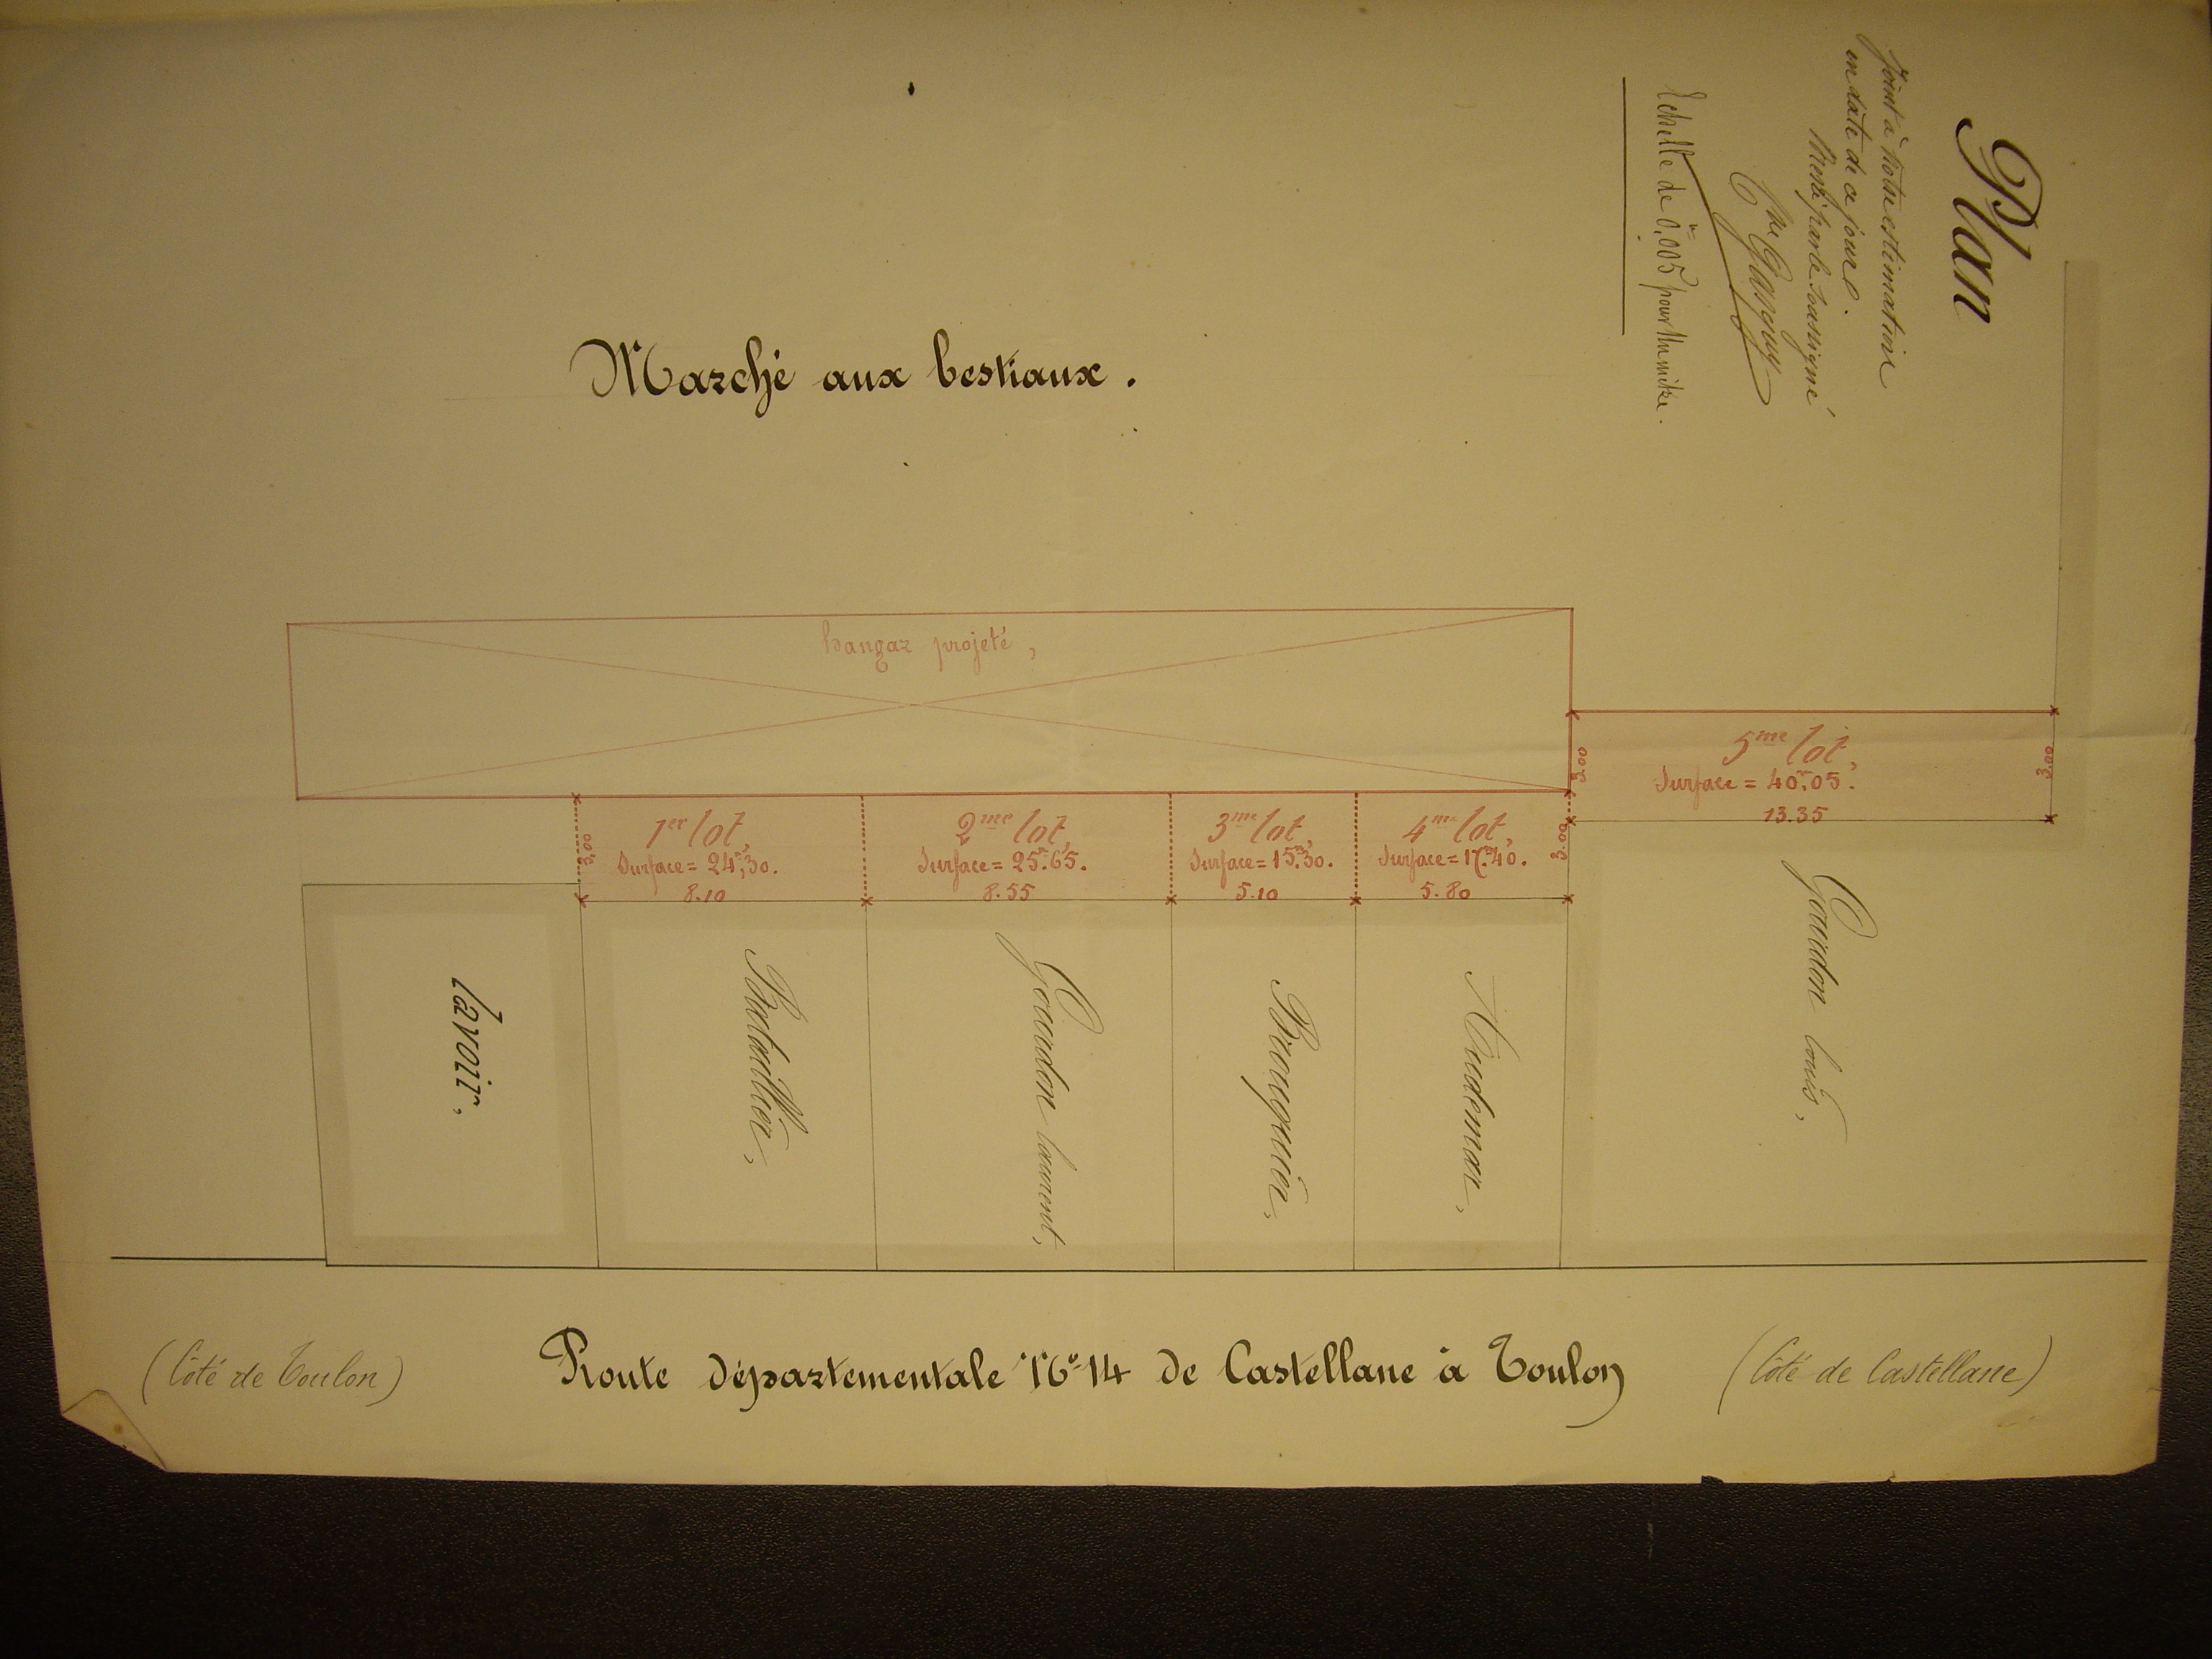 Plan
Joint à notre estimation
en date de ce jour.
par le soussigné
Echelle de 0,005 pour un mètre.
Marché aux bestiaux.
hangar projeté,
5me lot,
Surface = 40m,05.
13.35
3.00
3.00
1er lot,
Surface = 24m,30.
8.10
3,00
2me lot,
Surface = 25m,65.
8.55
3me lot,
Surface = 15m,30.
5.10
4me lot,
Surface = 17m,40.
5.80
3.00
lavoir.
Gourdon laurent,
Bruquier,
Audemar,
Gourdon louis,
(Côté de Toulon)
Route départementale No 14 de Castellane à Toulon
(Côté de Castellane)